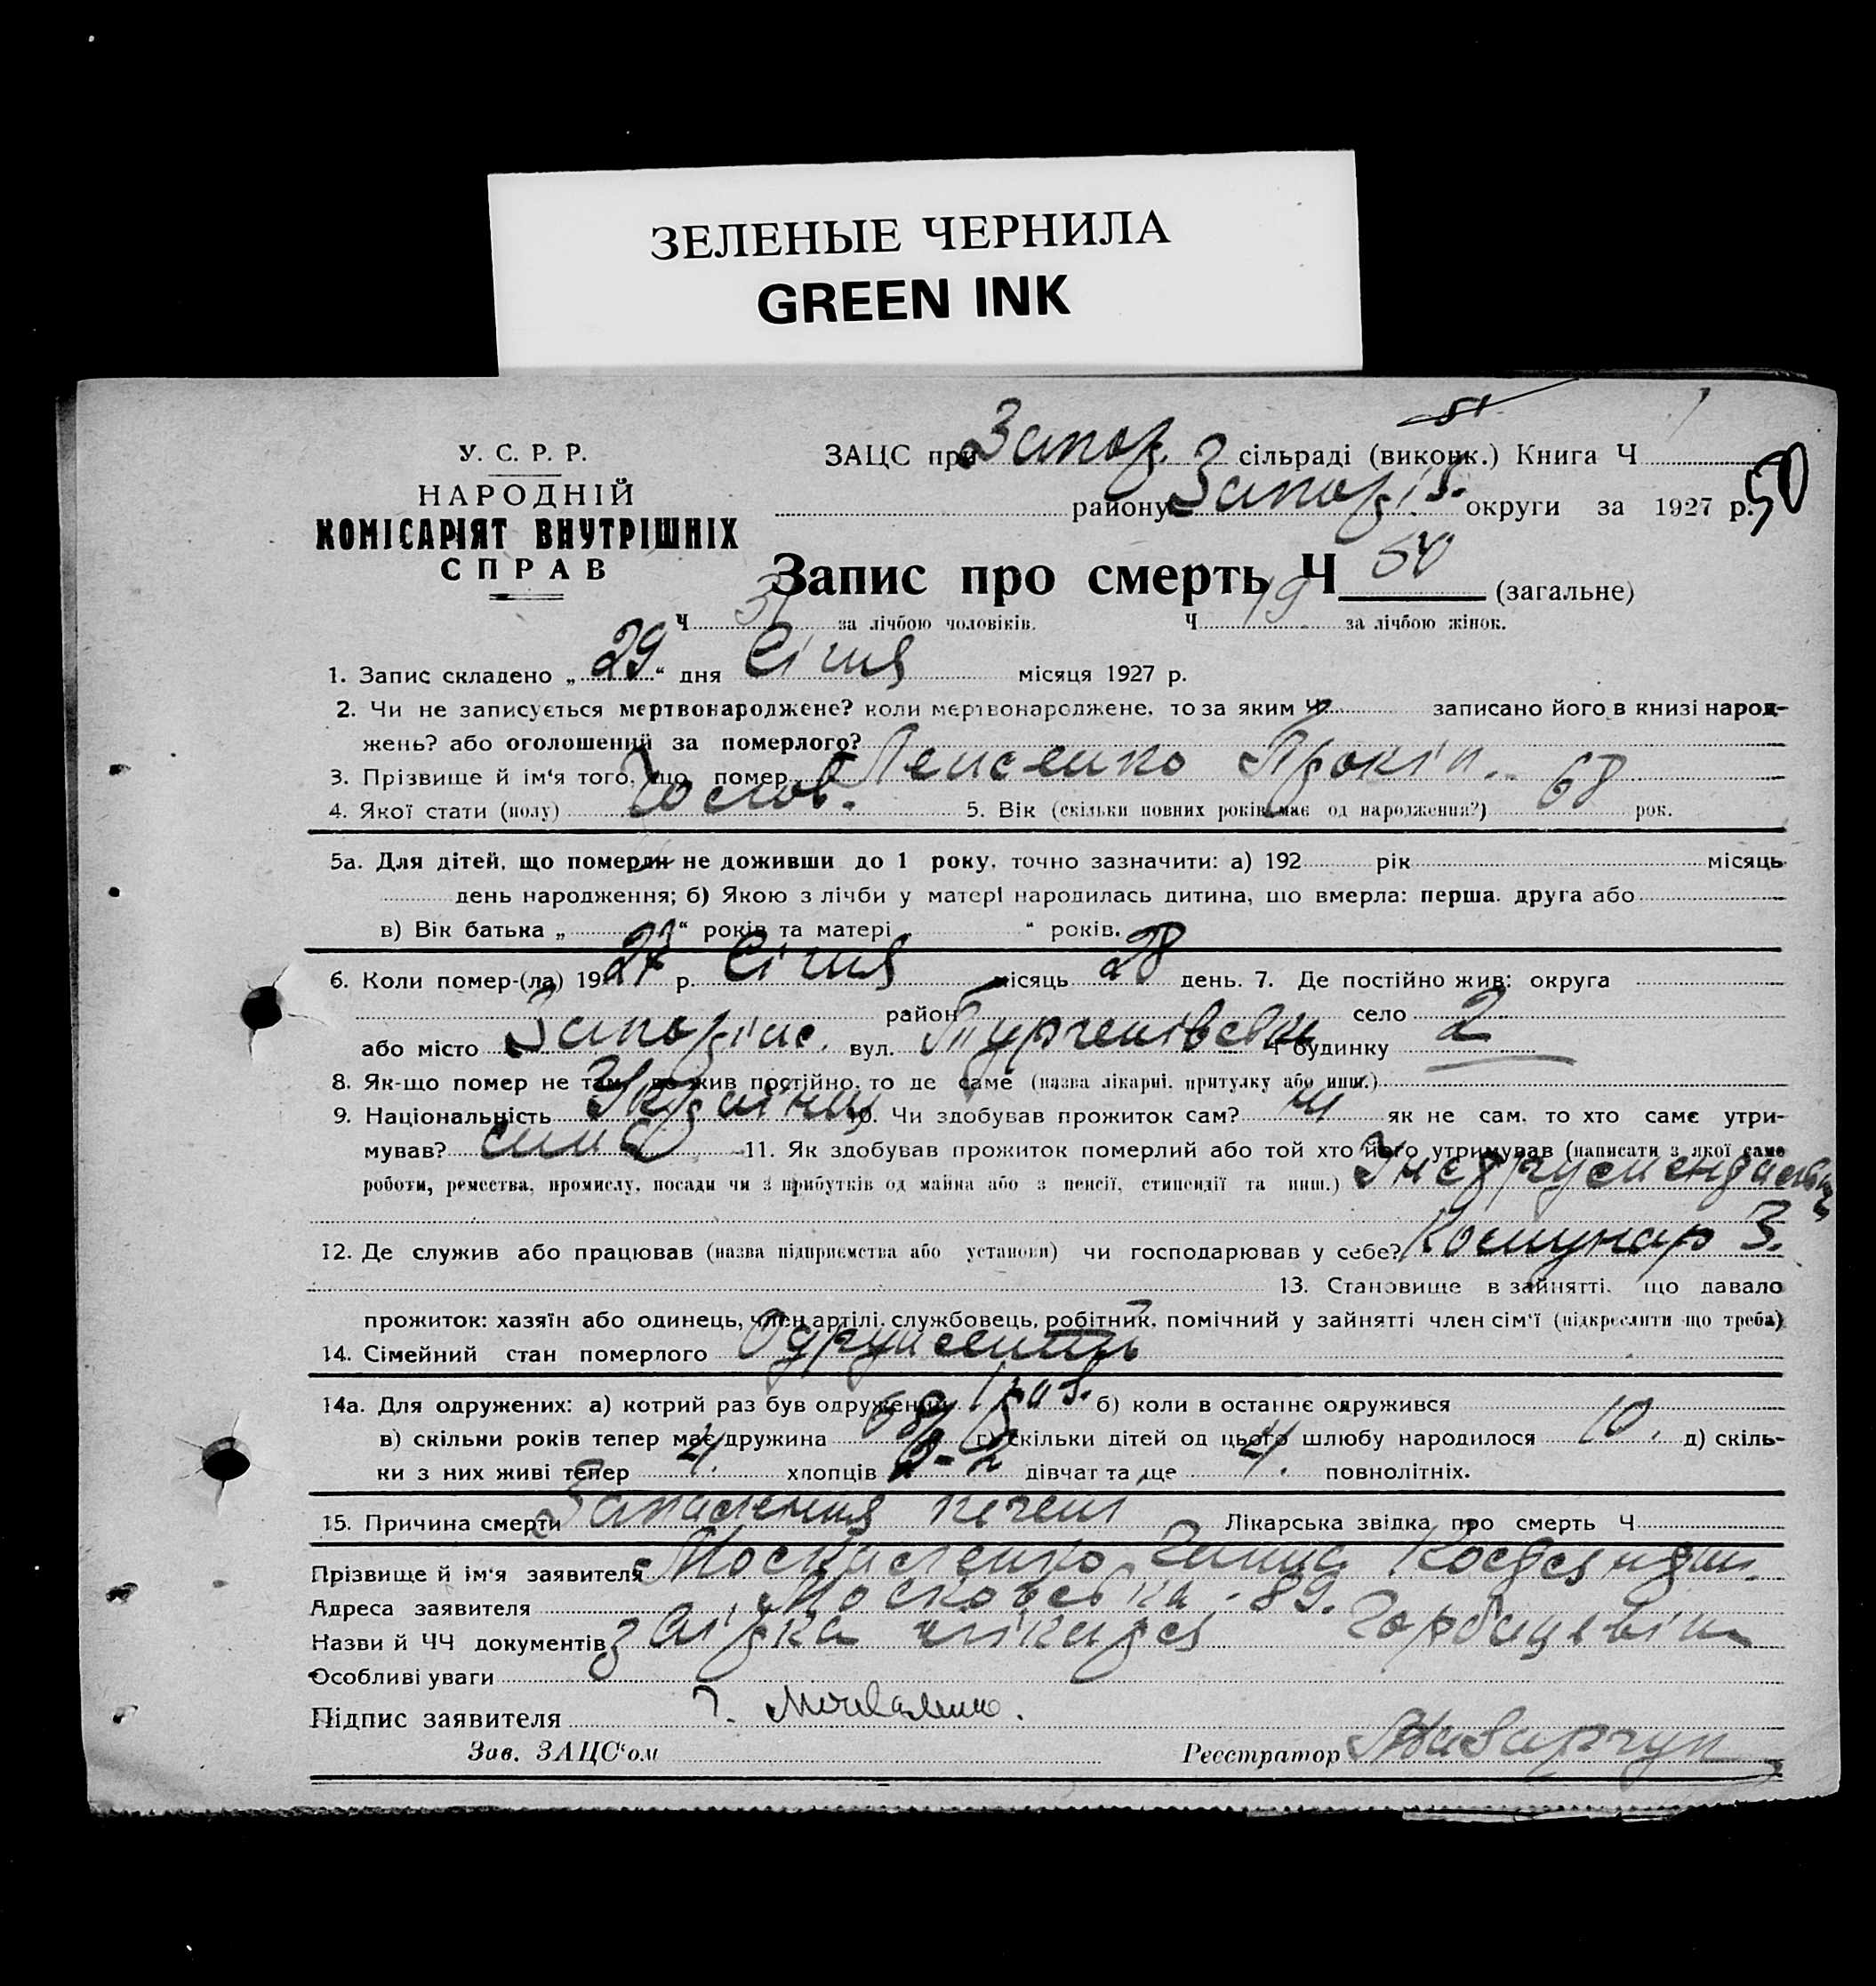 ЗЕЛЕНЫЕ ЧЕРНИЛА
GREEN INK
51
У. С. Р. Р.
НАРОДНІЙ
КОМІСАРІЯТ ВНУТРІШНІХ
СПРАВ
ЗАЦС при Запор. сільраді (виконк.) Книга Ч
району Запоріз. округи за 1927 р. 50
Запис про смерть Ч 50 (загальне)
Ч 31 за лічбою чоловіків. Ч 19 за лічбою жінок.
1. Запис складено „ 29 “ дня Січня місяця 1927 р.
2. Чи не записується мертвонароджене? коли мертвонароджене, то за яким Ч записано його в книзі народ-
жень? або оголошений за померлого?
3. Прізвище й ім'я того, що помер Прокіп.
4. Якої стати (полу) Чолов. 5. Вік (скільки повних років має од народження?) 68 рок.
5а. Для дітей, що померли не доживши до 1 року, точно зазначити: а) 192 рік місяць
день народження; б) Якою з лічби у матері народилась дитина, що вмерла: перша, друга або
в) Вік батька „ “ років та матері “ років.
6. Коли помер-(ла) 1927 р. Січня місяць 28 день. 7. Де постійно жив: округа
район село
або місто Запоріж. вул. Тургенівська Ч будинку 2
8. Як-що помер не там, де жив постійно, то де саме (назва лікарні, притулку або инш.)
9. Національність Україн 10. Чи здобував прожиток сам? ні як не сам, то хто саме утри-
мував? син 11. Як здобував прожиток померлий або той хто його утримував (написати з якої само
роботи, ремества, промислу, посади чи з прибутків од майна або з пенсії, стипендії та инш.)
12. Де служив або працював (назва підприємства або установи) чи господарював у себе? Комунар З.
13. Становище в зайнятті, що давало
прожиток: хазяїн або одинець, член артілі, службовець, робітник, помічний у зайнятті член сім'ї (підкреслити що треба)
14. Сімейний стан померлого Одружений
14а. Для одружених: а) котрий раз був одружений 1 раз. б) коли в останнє одружився
в) скільки років тепер має дружина 68 г) скільки дітей од цього шлюбу народилося 10. д) скіль-
ки з них живі тепер 4. хлопців 2 дівчат та ще 4. повнолітніх.
15. Причина смерти Запалення печені Лікарська звідка про смерть Ч
Прізвище й ім'я заявителя Москаленко Ганна
Адреса заявителя Московська - 89.
Назви й ЧЧ документів звідка лікаря
Особливі уваги
Підпис заявителя Г. Москаленко.
Зав. ЗАЦС'ом Реєстратор